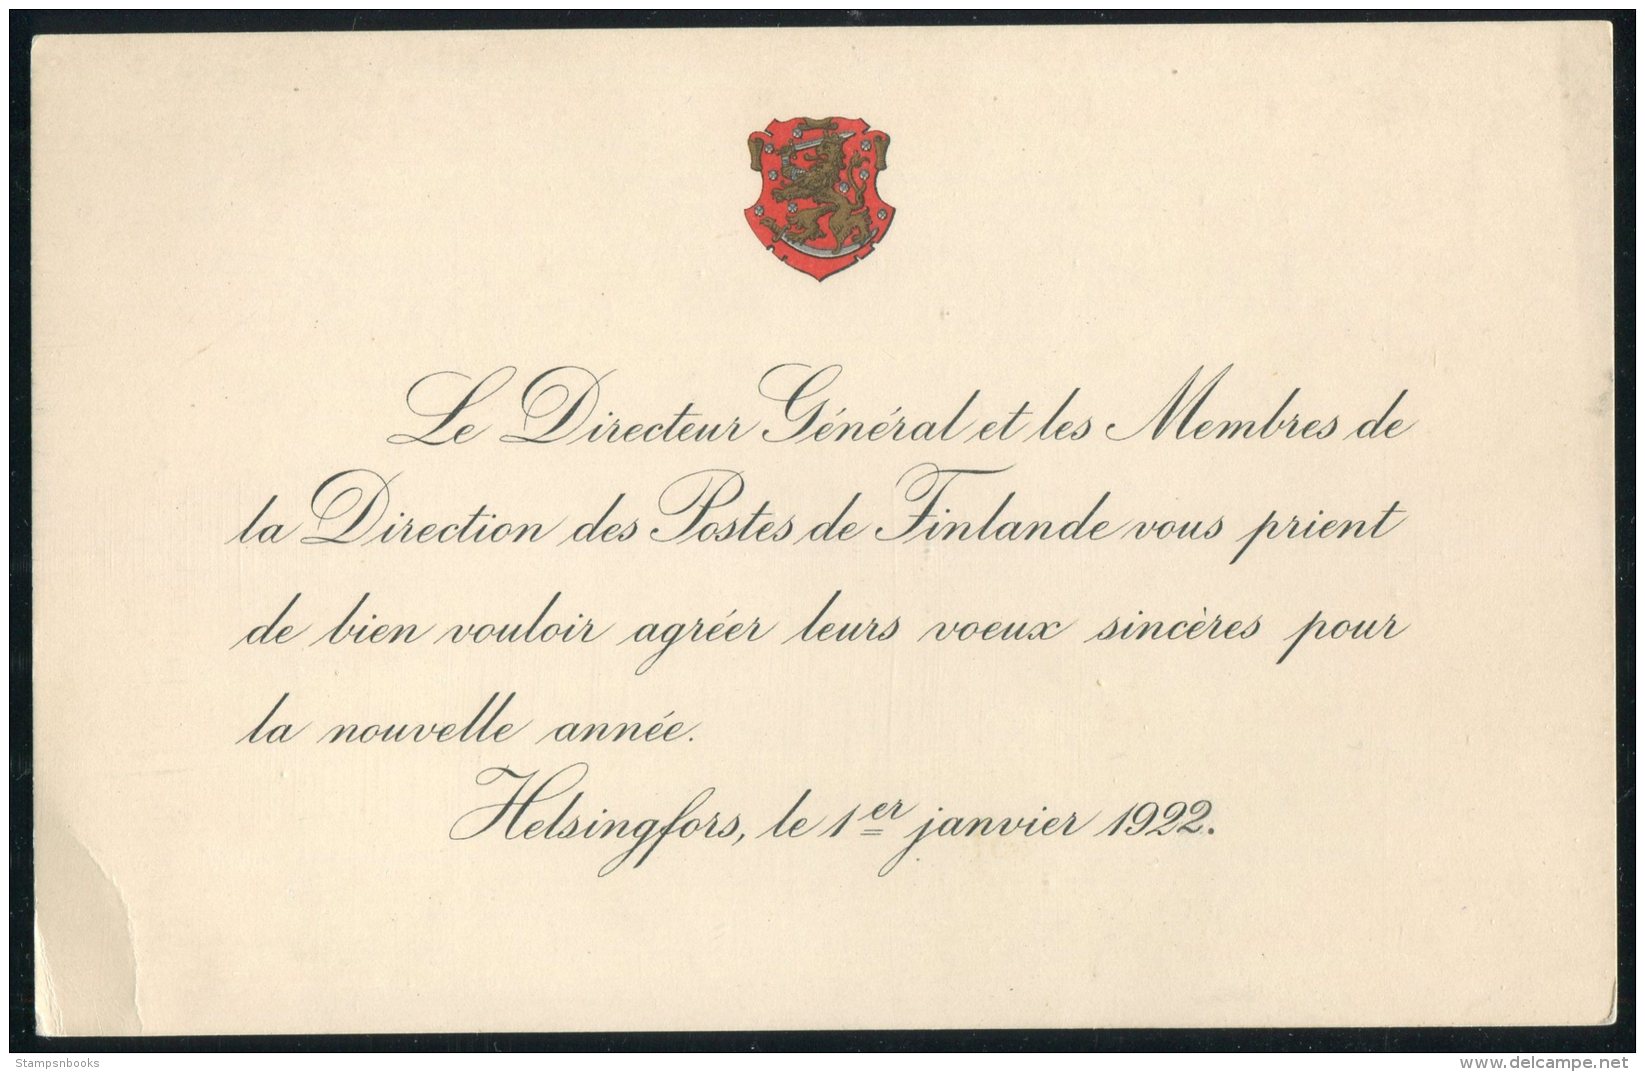 Le Directeur Général et les Membres de
la Direction des Postes de Finlande vous prient
de bien vouloir agréer leurs voeux sincères pour
la nouvelle année.
Helsingfors, le 1er janvier 1922.
Stampsnbooks
delcampe.net